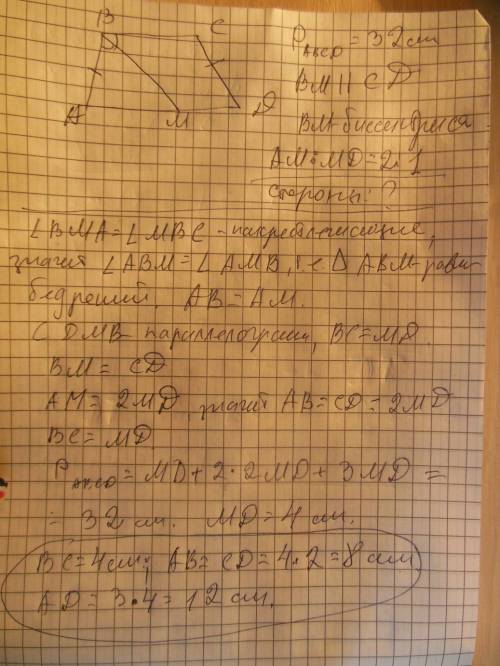 B C
A M D
P ABCD = 32 см
BM || CD
BM биссектриса
AM : MD = 2 : 1
стороны ?
∠BMA = ∠MBC - накрестлежащие,
значит ∠ABM = ∠AMB, т.е. Δ ABM - равно-
бедренный. AB = AM.
CDMB - параллелограмм, BC = MD.
BM = CD
AM = 2MD, значит AB = CD = 2MD
BC = MD
P ABCD = MD + 2·2MD + 3MD =
= 32 см. MD = 4 см.
BC = 4 см; AB = CD = 4·2 = 8 см
AD = 3·4 = 12 см.